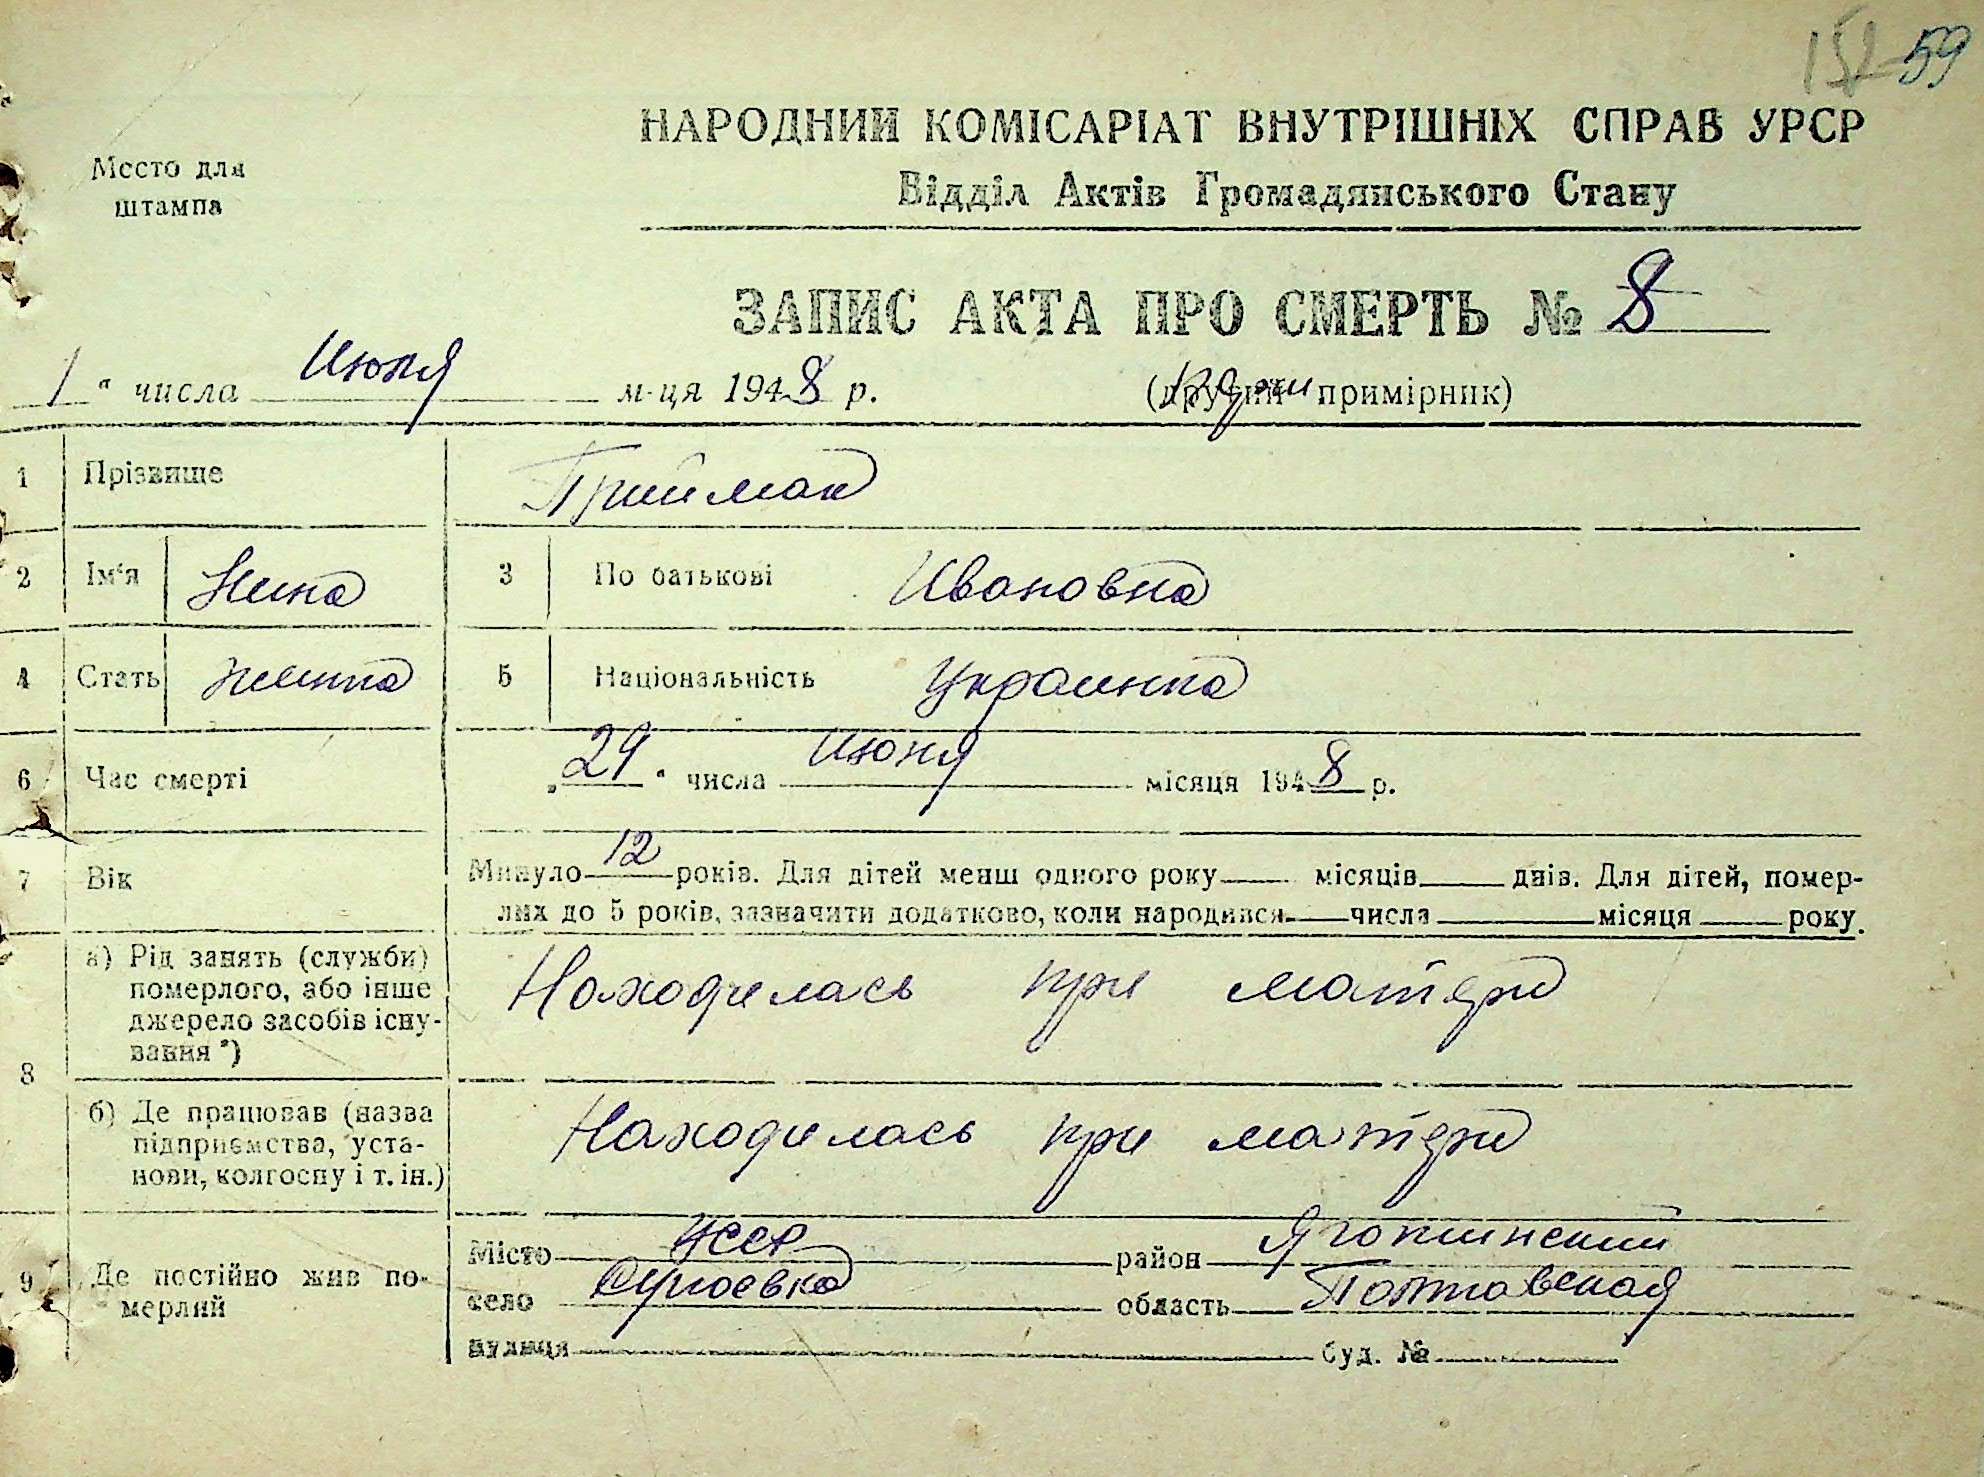 59
НАРОДНИЙ КОМІСАРІАТ ВНУТРІШНІХ СПРАВ УРСР
Место для
штампа
Відділ Актів Громадянського Стану
ЗАПИС АКТА ПРО СМЕРТЬ № 8
1 " числа Июля м-ця 1948 р.
(другий примірник)
1 Прізвище Приймак
2 Ім'я Нина 3 По батькові Ивановна
4 Стать 5 Національність Украинка
6 Час смерті „29" числа Июня місяця 1948 р.
7 Вік Минуло 12 років. Для дітей менш одного року місяців днів. Для дітей, помер-
лих до 5 років, зазначити додатково, коли народився числа місяця року.
8 а) Рід занять (служби)
померлого, або інше
джерело засобів існу-
вання*)
Находилась при матери
б) Де працював (назва
підприємства, уста-
нови, колгоспу і т. ін.)
Находилась при матери
9 Де постійно жив по-
мерлий
Місто УССР район Яготинский
село область Полтавская
вулиця буд. №